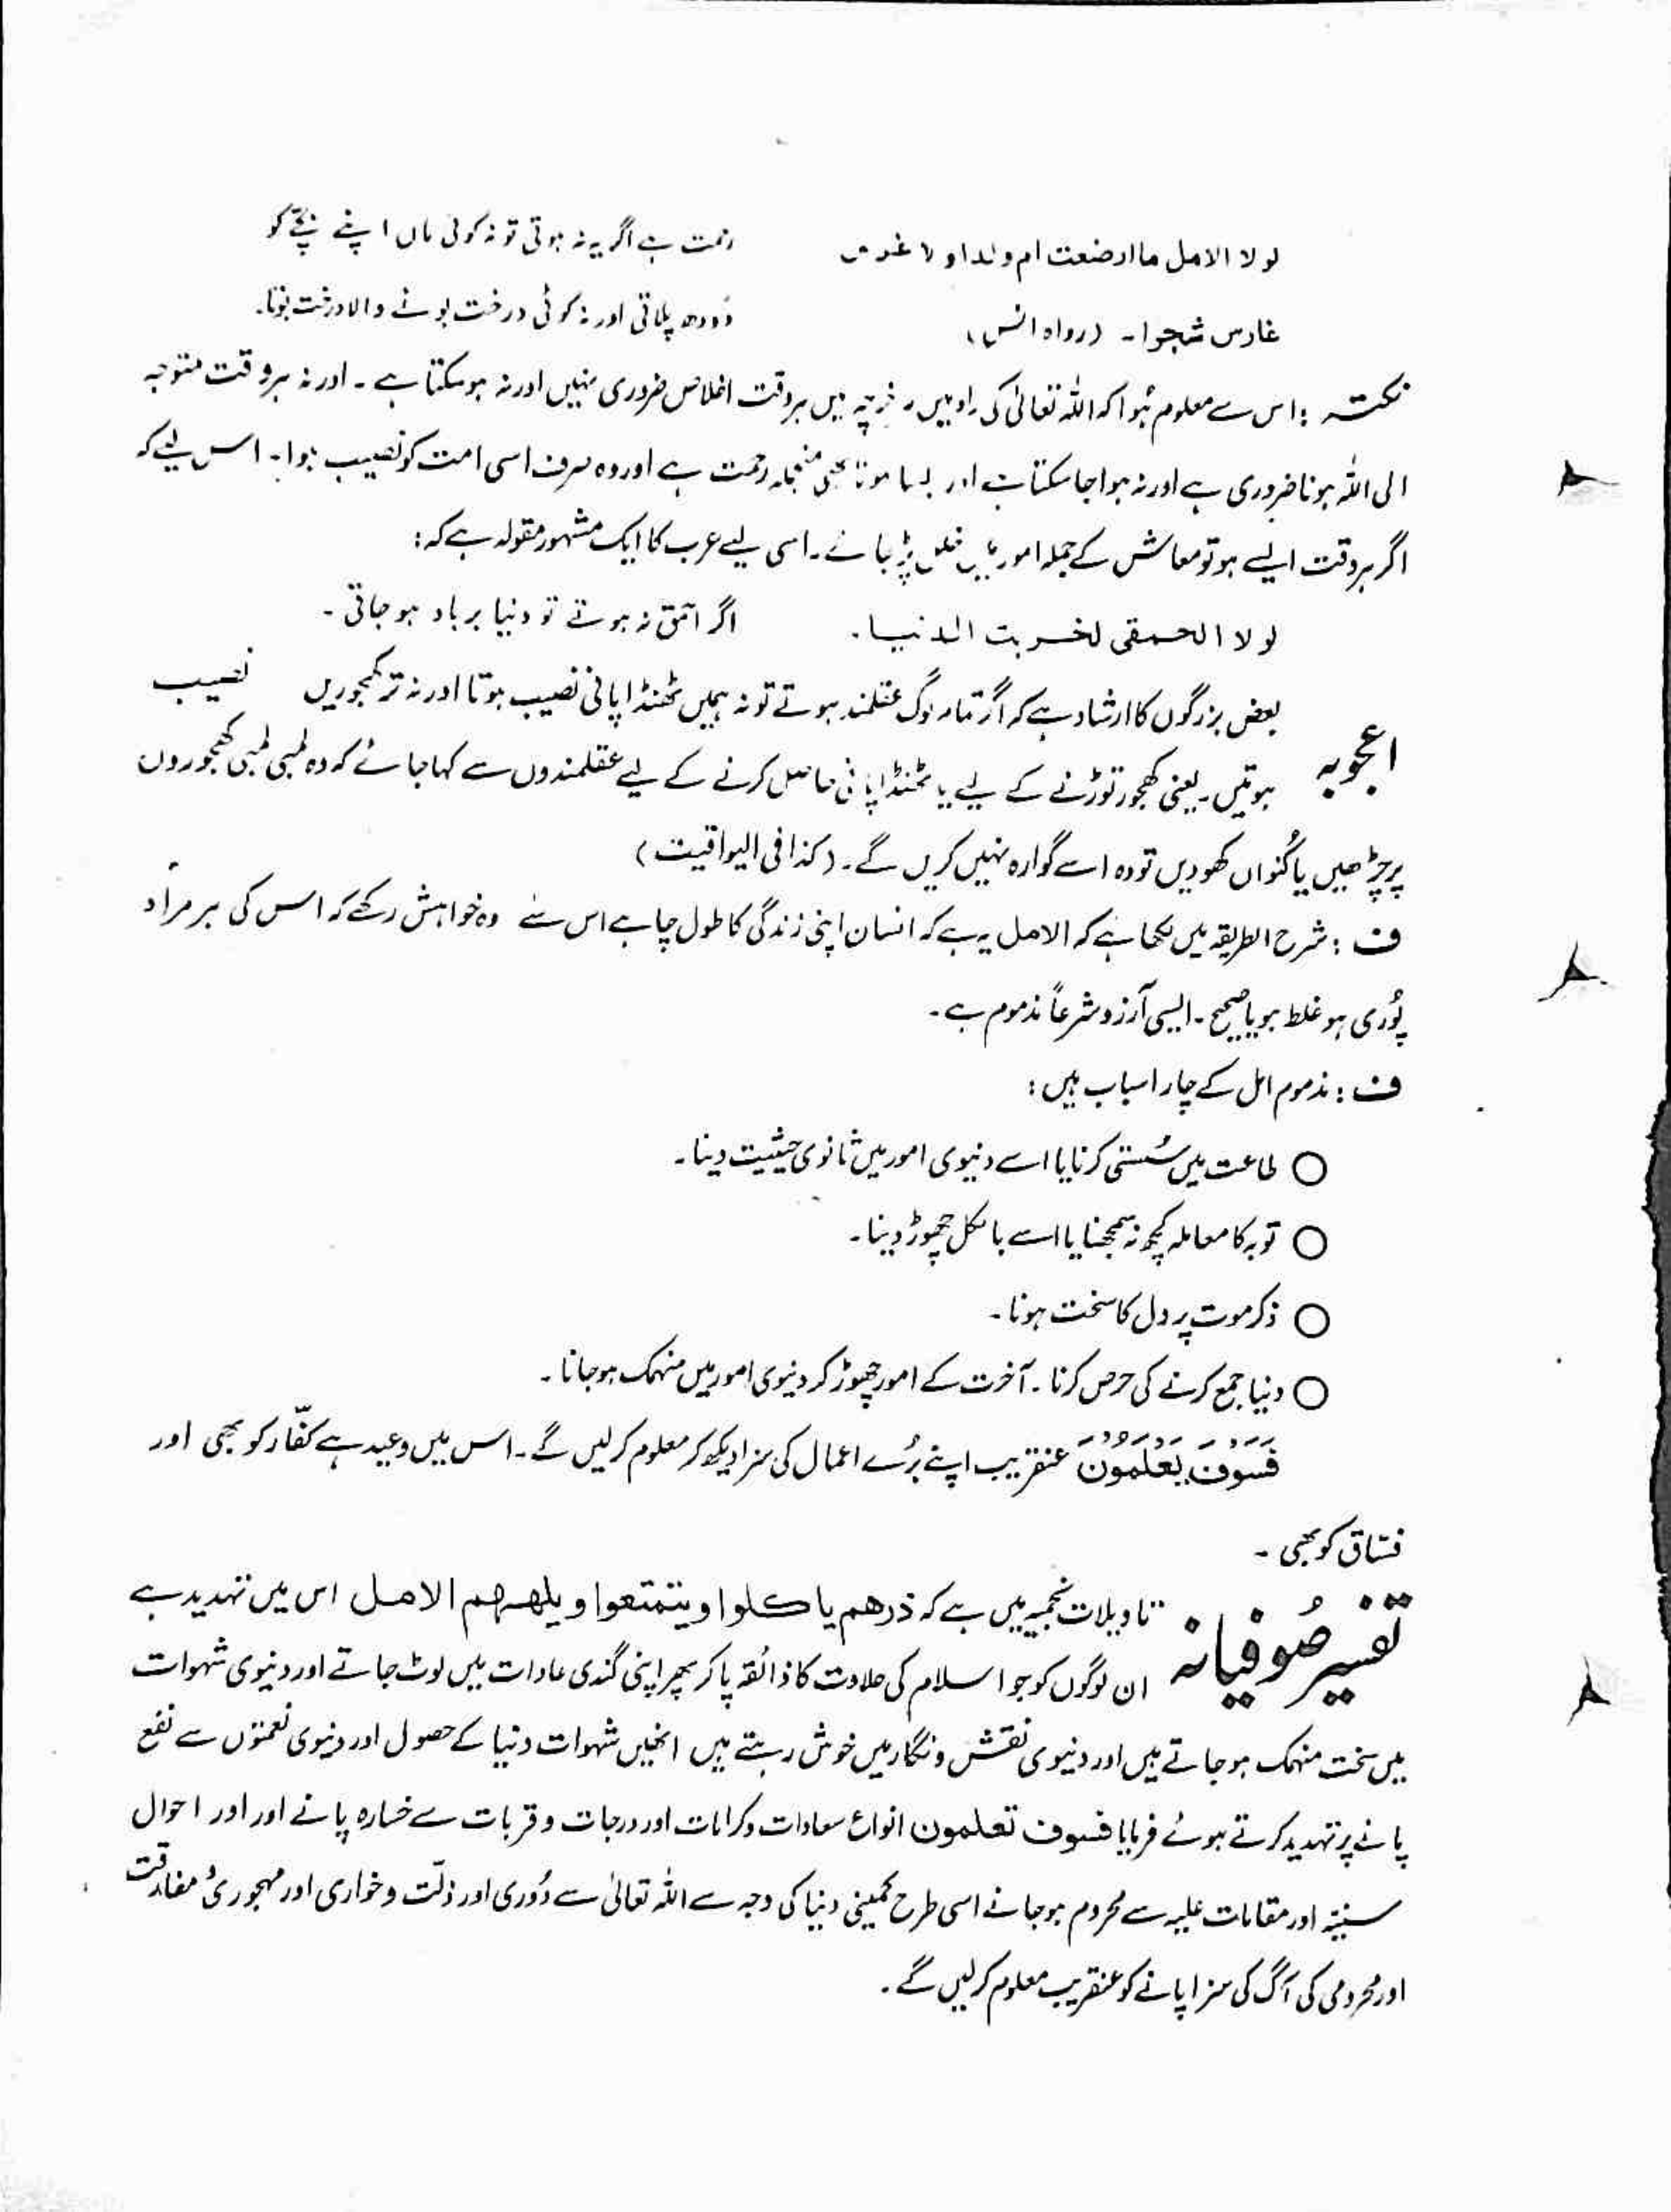 لولا الامل ما ارضعت ام ولدا ولا غرس رحمت ہے اگر یہ نہ ہوتی تو نہ کوئی ماں اپنے بچّے کو
غارس شجرا۔ (رواہ انس) دُودھ پلاتی اور نہ کوئی درخت بونے والا درخت بوتا۔
نکتہ : اس سے معلوم ہُوا کہ اللہ تعالیٰ کی راہ میں خرچہ میں ہر وقت اخلاص ضروری نہیں اور نہ ہو سکتا ہے۔ اور نہ ہر وقت متوجہ
الی اللہ ہونا ضروری ہے اور نہ ہوا جا سکتا ہے اور ایسا ہونا بھی منجملہ رحمت ہے اور وہ صرف اسی امت کو نصیب ہوا۔ اس لیے کہ
اگر ہر وقت ایسے ہو تو معاش کے جملہ امور میں خلل پڑ جائے۔ اسی لیے عرب کا ایک مشہور مقولہ ہے کہ :
لولا الحمقی لخربت الدنیا۔ اگر احمق نہ ہوتے تو دنیا برباد ہو جاتی۔
اعجوبہ بعض بزرگوں کا ارشاد ہے کہ اگر تمام لوگ عقلمند ہوتے تو نہ ہمیں ٹھنڈا پانی نصیب ہوتا اور نہ تر کھجوریں نصیب
ہوتیں۔ یعنی کھجور توڑنے کے لیے یا ٹھنڈا پانی حاصل کرنے کے لیے عقلمندوں سے کہا جائے کہ وہ لمبی لمبی کھجوروں
پر چڑھیں یا کُنواں کھودیں تو وہ اسے گوارہ نہیں کریں گے۔ (کذا فی الیواقیت)
ف : شرح الطریقہ میں لکھا ہے کہ الامل یہ ہے کہ انسان اپنی زندگی کا طول چاہے اس سے وہ خواہش رکھے کہ اس کی ہر مراد
پُوری ہو غلط ہو یا صحیح۔ ایسی آرزو شرعاً مذموم ہے۔
ف : مذموم امل کے چار اسباب ہیں :
○ طاعت میں سُستی کرنا یا اسے دنیوی امور میں ثانوی حیثیت دینا۔
○ توبہ کا معاملہ کچھ نہ سمجھنا یا اسے بالکل چھوڑ دینا۔
○ ذکر موت پر دل کا سخت ہونا۔
○ دنیا جمع کرنے کی حرص کرنا۔ آخرت کے امور چھوڑ کر دنیوی امور میں منہمک ہو جانا۔
فَسَوْفَ یَعْلَمُوْنَ عنقریب اپنے بُرے اعمال کی سزا دیکھ کر معلوم کر لیں گے۔ اس میں وعید ہے کفّار کو بھی اور
فسّاق کو بھی۔
تفسیر صُوفیانہ تاویلات نجمیہ میں ہے کہ ذرھم یاکلوا ویتمتعوا ویلھھم الامل اس میں تہدید ہے
ان لوگوں کو جو اسلام کی حلاوت کا ذائقہ پا کر پھر اپنی گندی عادات میں لوٹ جاتے اور دنیوی شہوات
میں سخت منہمک ہو جاتے ہیں اور دنیوی نقش و نگار میں خوش رہتے ہیں انھیں شہوات دنیا کے حصول اور دنیوی نعمتوں سے نفع
پانے پر تہدید کرتے ہوئے فرمایا فسوف تعلمون انواع سعادات و کرامات اور درجات و قربات سے خسارہ پانے اور اور احوال
سنیّہ اور مقامات علیہ سے محروم ہو جانے اسی طرح کمینی دنیا کی وجہ سے اللہ تعالیٰ سے دُوری اور ذلّت و خواری اور مہجوری مفارقت
اور محرومی کی آگ کی سزا پانے کو عنقریب معلوم کر لیں گے۔